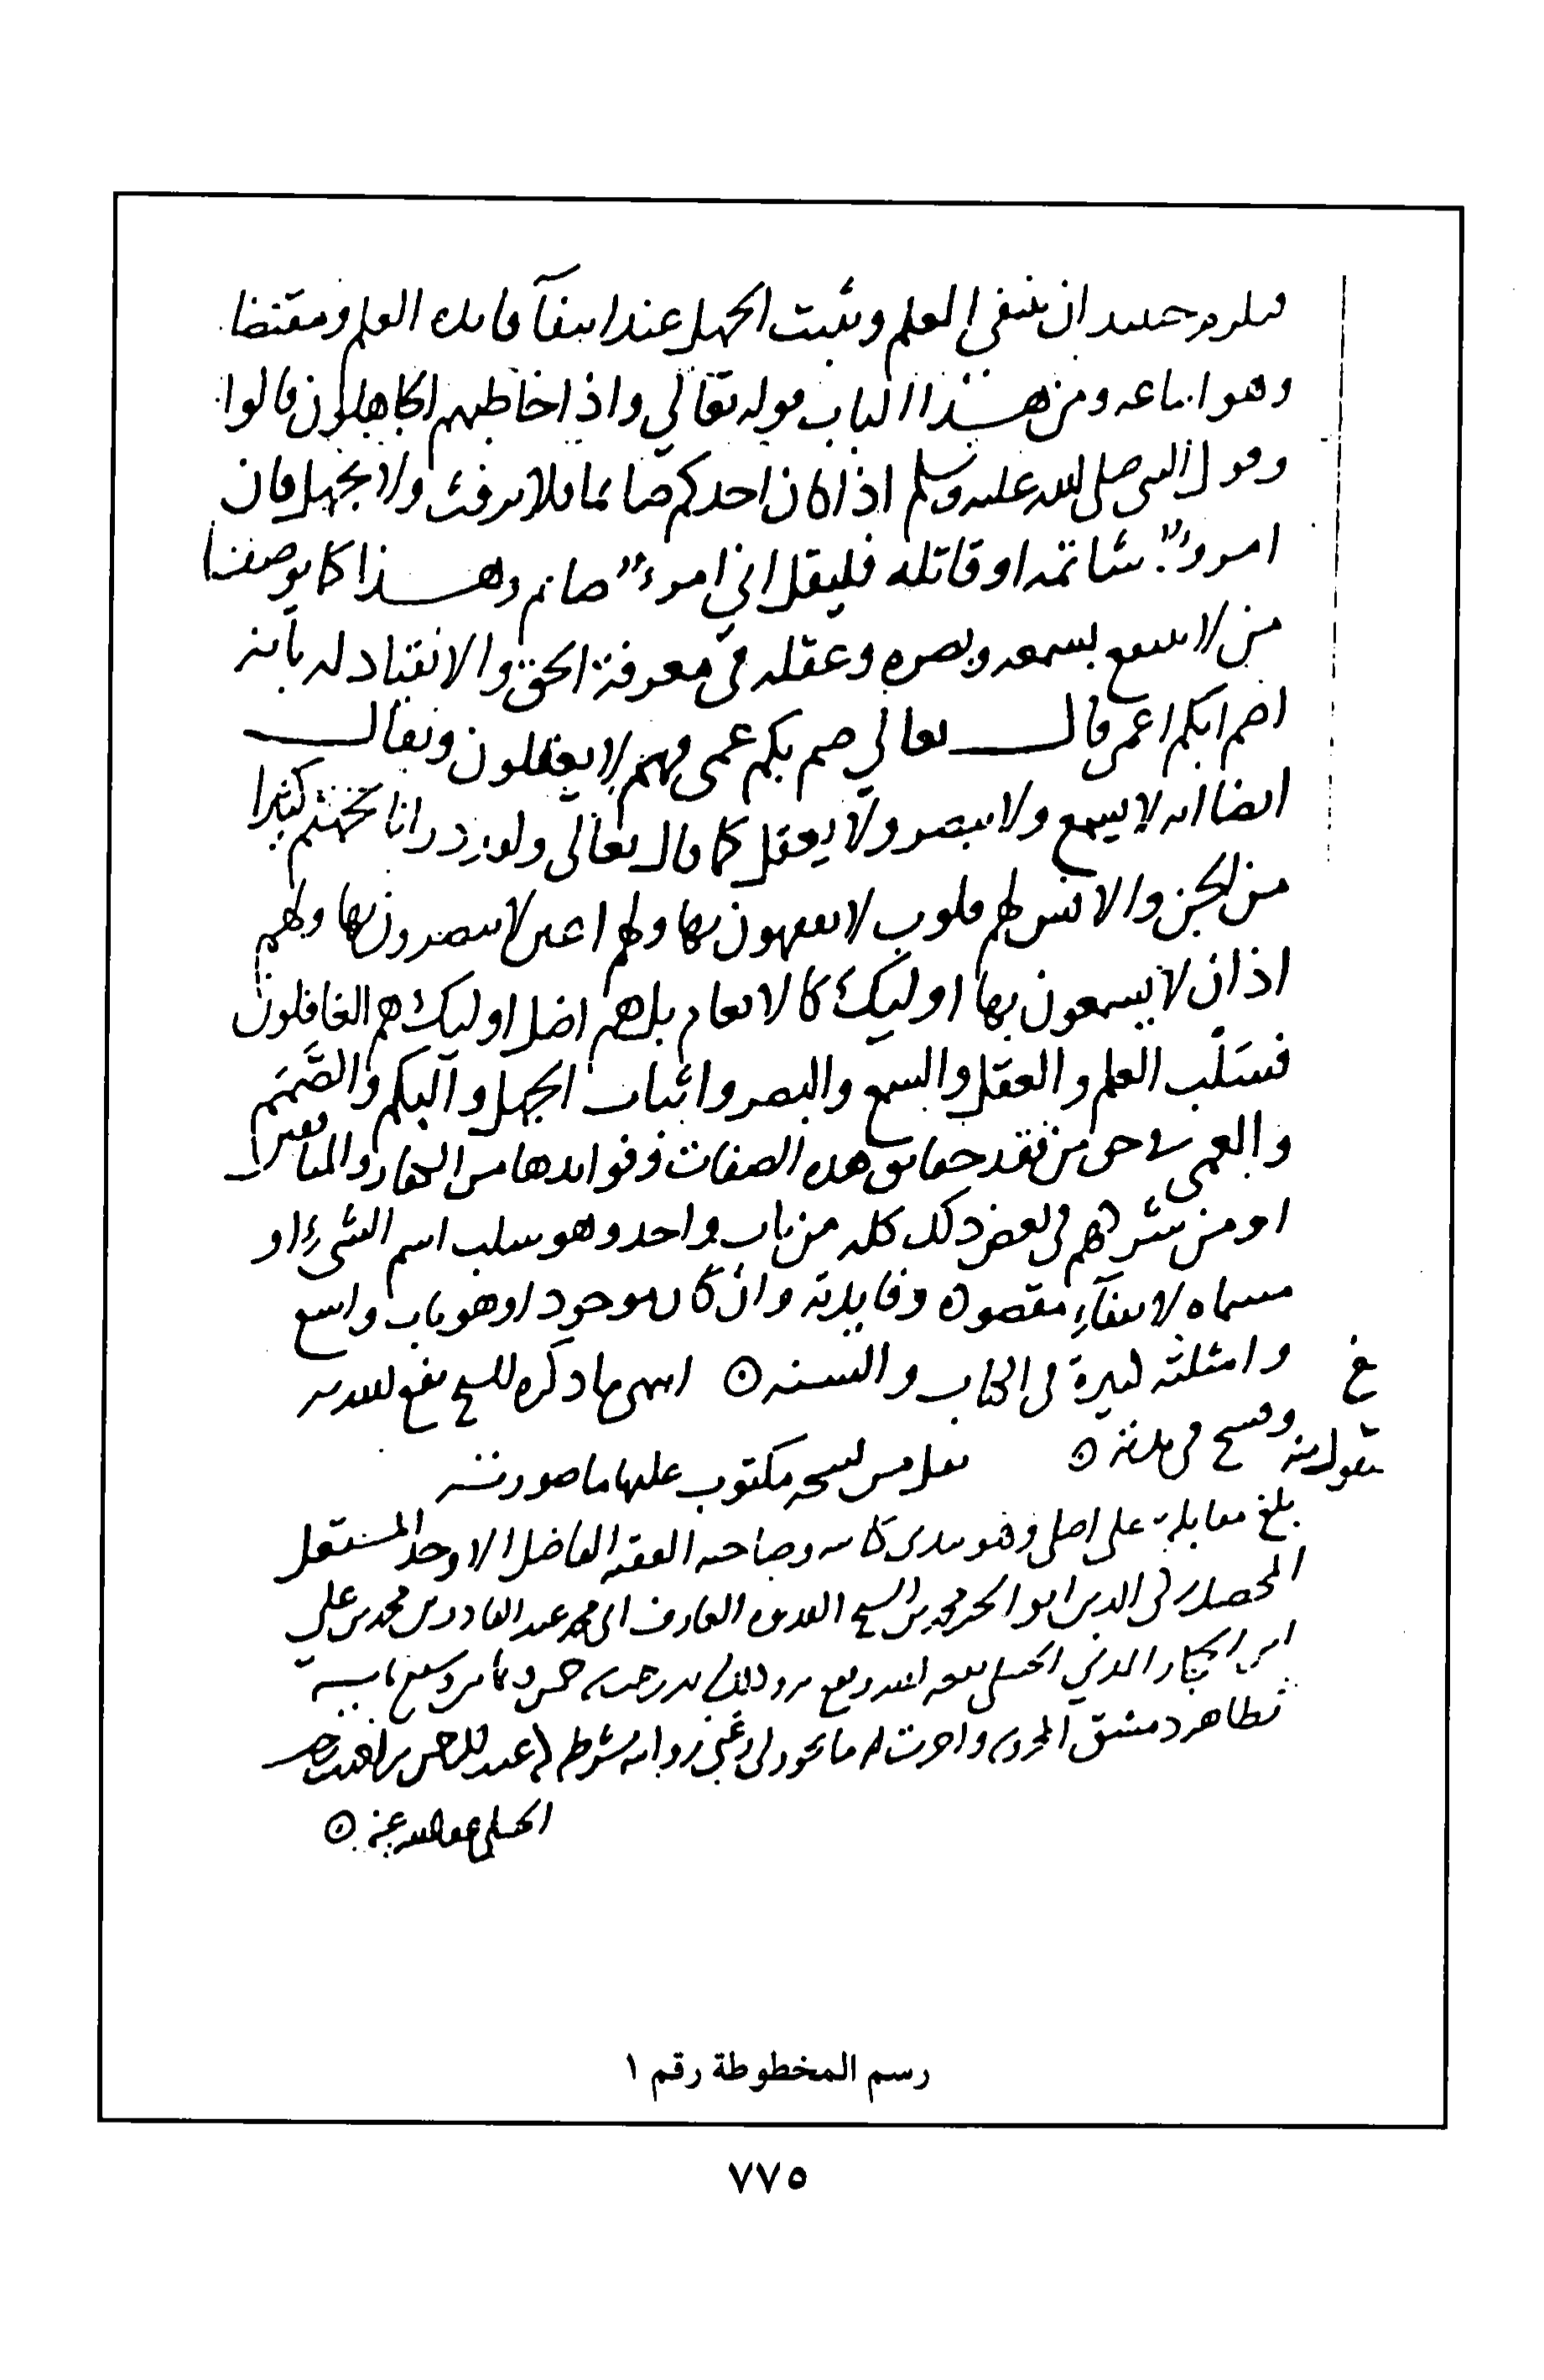 فيلزم حينئذ ان ينتفي العلم ويثبت الجهل عند انتفآ فايدة العلم ومقتضا
وهو اتباعه ومن هذا الباب قوله تعالي واذا خاطبهم الجاهلون قالوا
وقول النبي صلى الله عليه وسلم اذا كان احدكم صائما فلا يرفث ولا يجهل فان
امرؤ شاتمه او قاتله فليقل اني امرء صائم وهذا كما يوصف
من لا ينتفع بسمعه وبصره وعقله في معرفة الحق والانقياد له بأنه
اصم ابكم اعمى قال تعالي صم بكم عمى فهم لا يعقلون ويقال
ايضا انه لا يسمع ولا يبصر ولا يعقل كما قال تعالى ولقد ذرانا لجهنم كثيرا
من الجن والانس لهم قلوب لا يفقهون بها ولهم اعين لا يبصرون بها ولهم
اذان لا يسمعون بها اوليك كالانعام بل هم اضل اوليك هم الغافلون
فسَلْب العلم والعقل والسمع والبصر واثبات الجهل والبكم والصَّمَم
والعمى في حق من فقد حقائق هذه الصفات وفوايدها من الكفار والمنافقين
او من شركهم في بعض ذلك كله من باب واحد وهو سلب اسم الشيء او
مسماه لانتفآء مقصوده وفايدته وان كان موجودا وهو باب واسع
وامثلته كثيرة في الكتاب والسنه ⊙ انتهى ما ذكره الشيخ نفع الله به
وفسح في مدته ⊙ نقل من نسخه مكتوب عليها ما صورته
خ
منقوله منه
بلغ مقابلة على اصلي وهو بيدي كاتبه وصاحبه الفقيه الفاضل الاوحد المشتغل
المحصل الدين ابو محمد بن الشيخ القدوه العارف ابي محمد عبد القادر بن محمد بن علي
ابن الحنبلي نفعه الله ونفع به وذلك خمس وثمانين وسبع مايه
بظاهر دمشق المحروسه واجزت له ما يجوز لي وعني روايته بشرطه عبد الرحمن بن احمد بن رجب
الحنبلي عفا الله عنه ⊙
رسم المخطوطة رقم ١
٧٧٥